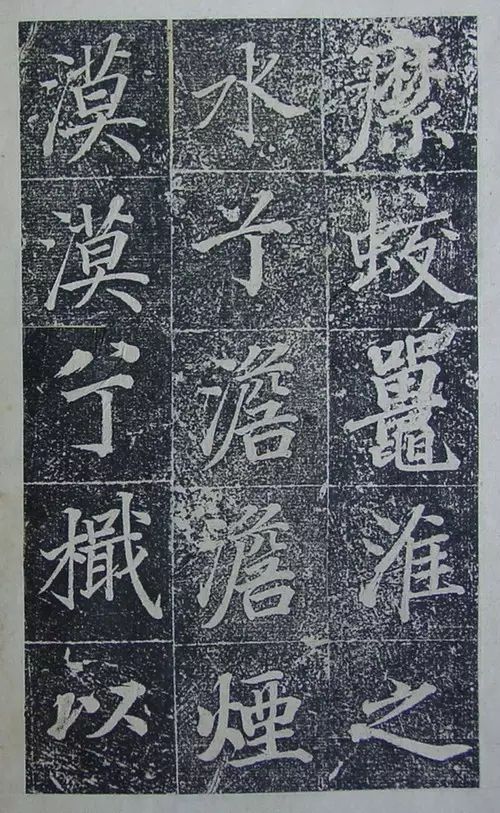 蛟鼉淮之
水兮澹澹煙
漠漠兮檝以